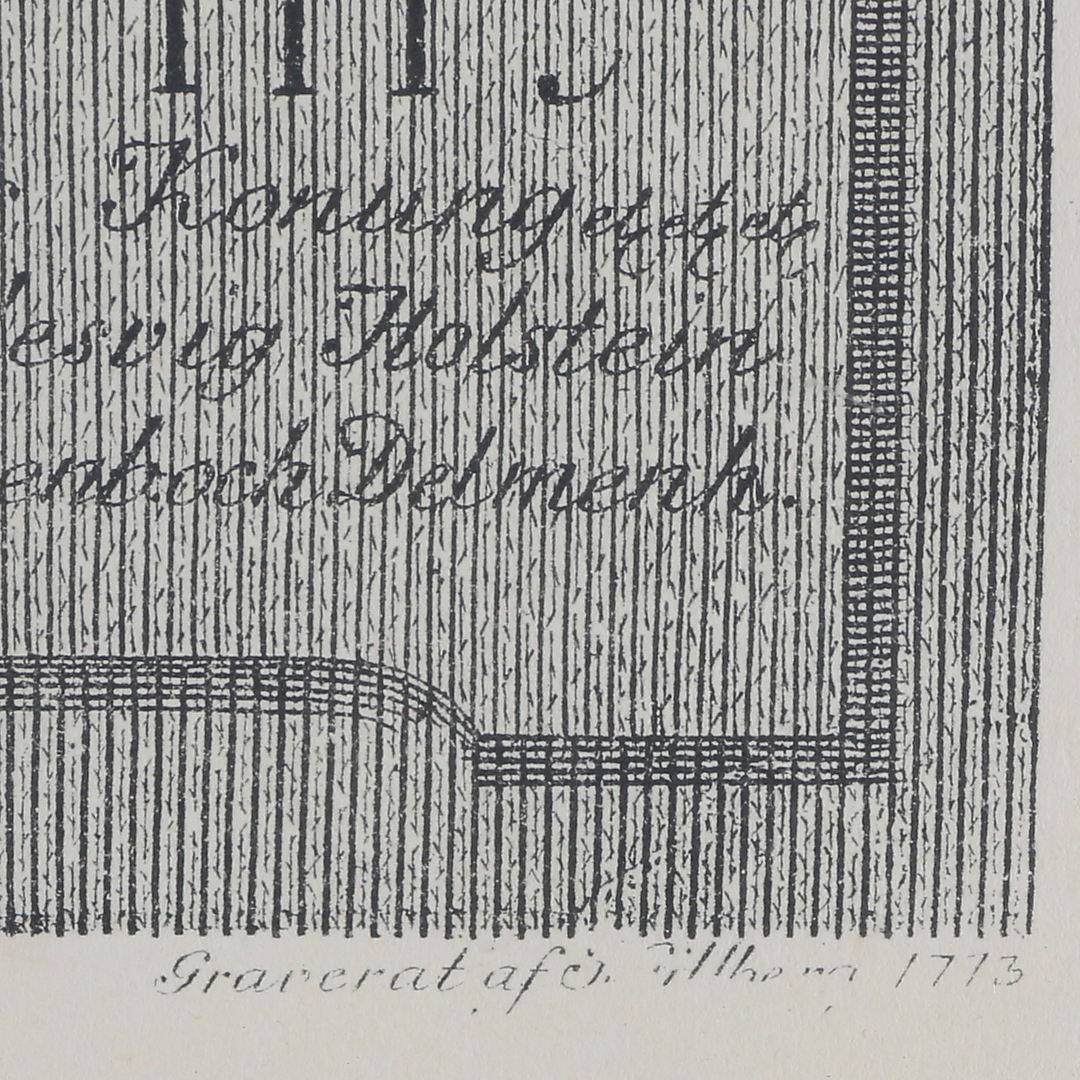 III,
Konung etc etc etc
lesvig Holstein
enb och Delmenh.
Graverat af J. Gillberg 1773